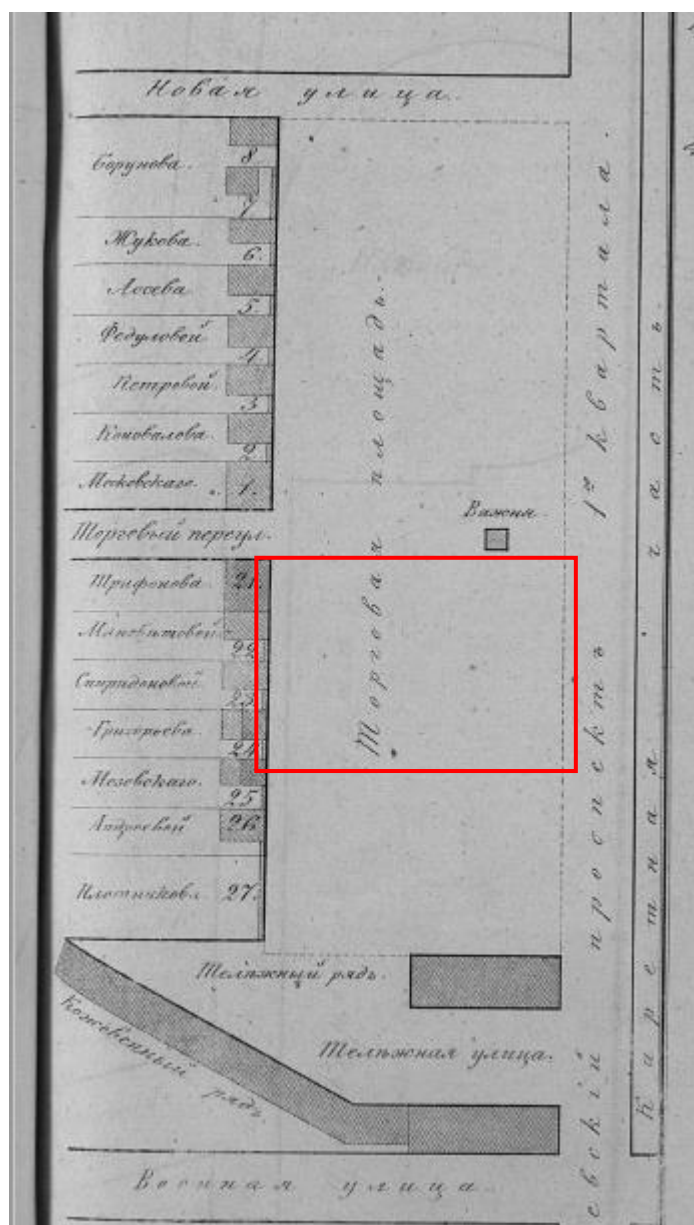 Новая улица.
Борунова.
8
7
Жукова.
6.
Лосева
5.
Федуловой
4.
Петровой.
3
Коновалова.
2
Московскаго.
1.
Торговый переул.
Трифонова
21.
22
Спиридоновой
23
Григорьева
24
Мозовскаго.
25
Андреевой
26
Плотникова
27.
Торговая площадь.
Важня.
Телѣжный рядъ.
Кожевенный рядъ.
Телѣжная улица.
Военная улица.
евскій проспектъ 1го квартала.
Каретная часть.